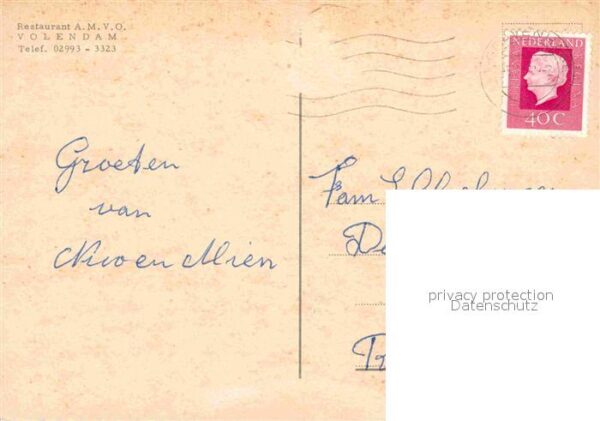 Restaurant A.M.V.O.
VOLENDAM
Telef. 02993 - 3323
NEDERLAND
40 C
Groeten
van
en Mien
Fam
De
privacy protection
Datenschutz